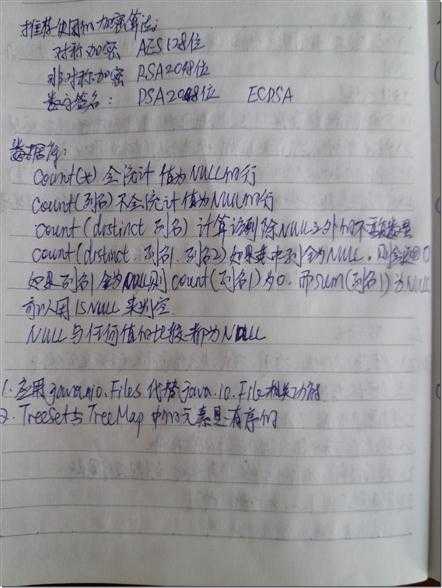 推荐使用的加密算法:
对称加密 AES128位
非对称加密 RSA2048位
数字签名: DSA2048位 ECDSA
数据库:
count(*) 会统计值为NULL的行
count(列名) 不会统计值为NULL的行
count(distinct 列名) 计算该列除NULL之外的不重复数量
count(distinct 列名1,列名2) 如果其中列全为NULL,则会返回0
如果列名1全为NULL则count(列名1)为0,而sum(列名1)为NULL
可以用ISNULL来判空
NULL与任何值的比较都为NULL
1.应用java.nio.Files代替java.io.File相关功能
2.TreeSet与TreeMap中的元素是有序的